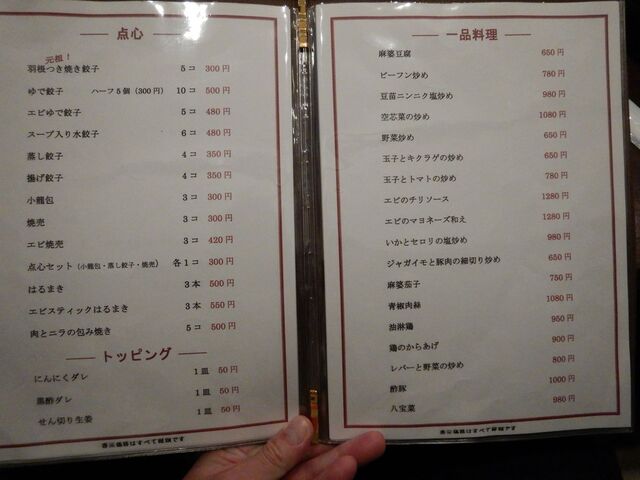 点心
元祖!
羽根つき焼き餃子 5コ 300円
ゆで餃子 ハーフ5個(300円) 10コ 500円
エビゆで餃子 5コ 480円
スープ入り水餃子 6コ 480円
蒸し餃子 4コ 350円
揚げ餃子 4コ 350円
小籠包 3コ 300円
焼売 3コ 300円
エビ焼売 3コ 420円
点心セット(小籠包・蒸し餃子・焼売) 各1コ 300円
はるまき 3本 500円
エビスティックはるまき 3本 550円
肉とニラの包み焼き 5コ 500円
トッピング
にんにくダレ 1皿 50円
黒酢ダレ 1皿 50円
せん切り生姜 1皿 50円
表示価格はすべて税別です
一品料理
麻婆豆腐 650円
ビーフン炒め 780円
豆苗ニンニク塩炒め 980円
空芯菜の炒め 1080円
野菜炒め 650円
玉子とキクラゲの炒め 650円
玉子とトマトの炒め 780円
エビのチリソース 1280円
エビのマヨネーズ和え 1280円
いかとセロリの塩炒め 980円
ジャガイモと豚肉の細切り炒め 650円
麻婆茄子 750円
青椒肉絲 1080円
油淋鶏 950円
鶏のからあげ 900円
レバーと野菜の炒め 800円
酢豚 1000円
八宝菜 980円
表示価格はすべて税別です